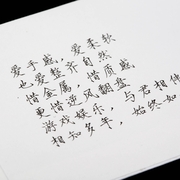 爱手感，爱柔软
也爱整齐自然
惜金属，惜质感
更惜逆风翻盘
游戏娱乐，与君相伴
相知多年，始终如